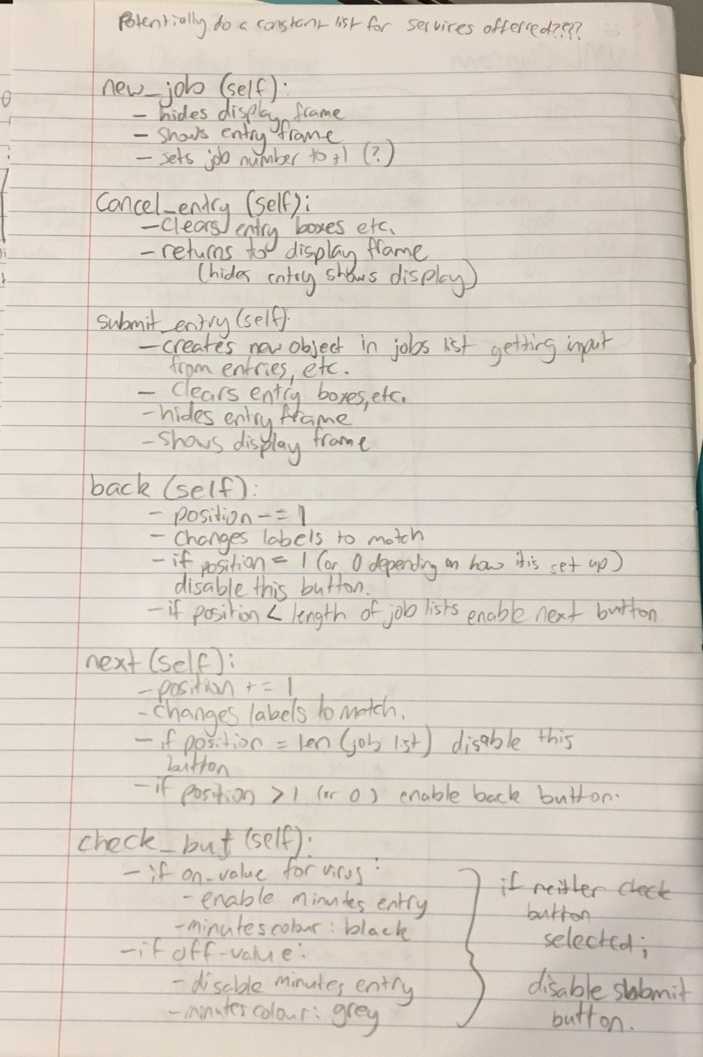 Potentially do a constant list for services offerred????
new_job (self):
- hides display frame
- shows entry frame
- sets job number to +1 (?)
Cancel_entry (self):
- clears entry boxes etc.
- returns to display frame
(hides entry shows display)
submit_entry(self):
- creates new object in jobs list getting input
from entries, etc.
- clears entry boxes, etc.
- hides entry frame
- shows display frame
back (self):
- position -= 1
- changes labels to match
- if position = 1 (or 0 depending on how it is set up)
disable this button.
- if position < length of job lists enable next button
next (self):
- position += 1
- changes labels to match.
- if position = len (job list) disable this
button
- if position > 1 (or 0) enable back button.
check_but (self):
- if on_value for virus:
- enable minutes entry
- minutes colour: black
- if off-value:
- disable minutes entry
- minutes colour: grey
if neither check
button
selected;
disable submit
button.